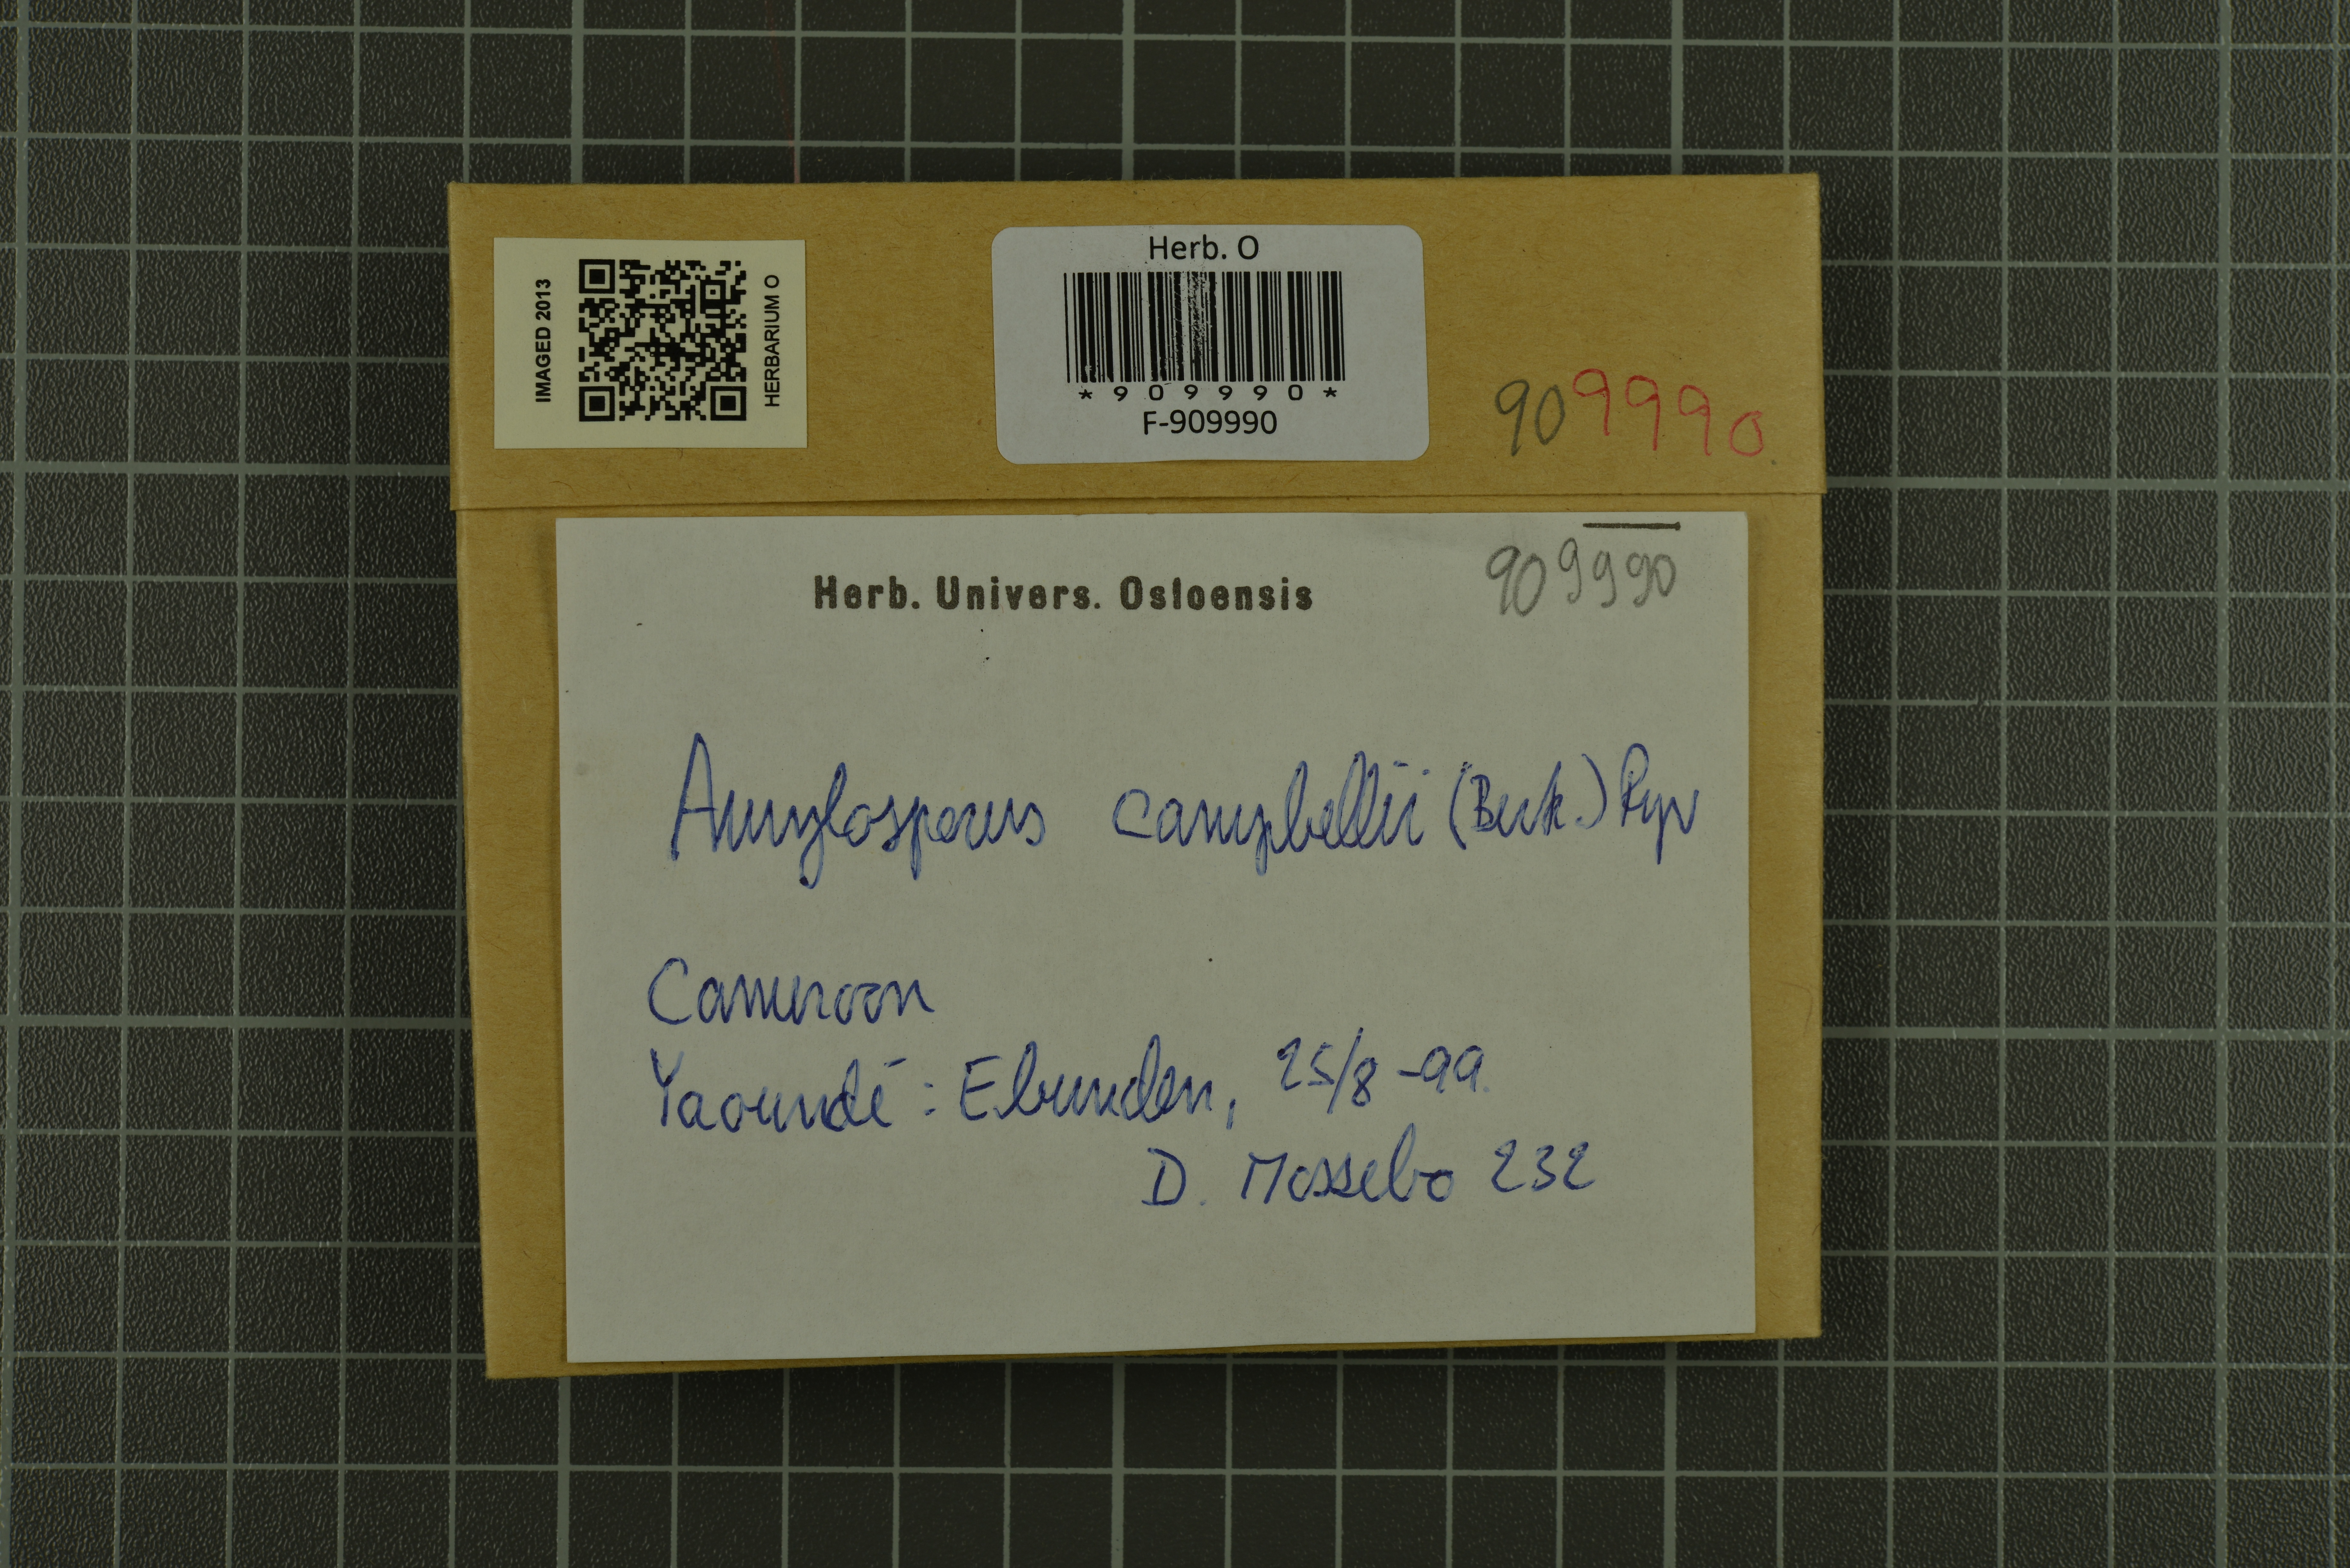 IMAGED 2013
HERBARIUM O
Herb. O
*909990*
F-909990
909990
909990
Herb. Univers. Osloensis
Amylosporus campbellii (Berk.) Ryv
Cameroon
Yaoundé: Ebunden, 25/8-99.
D. Mossebo 232